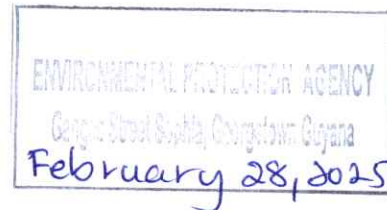 ENVIRONMENTAL PROTECTION AGENCY
Ganges Street Sophia, Georgetown Guyana
February 28, 2025